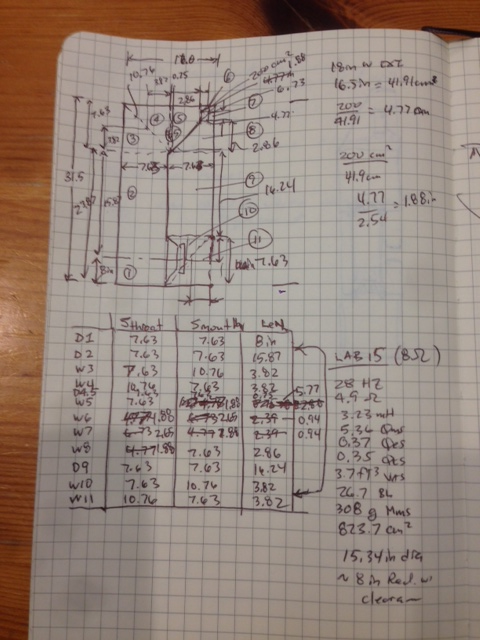 18.0
10.76
200 cm²
1.88
6.73
4.77
2.86
2.86
7.63
31.5
23.87
15.87
8in
7.63
7.63
16.24
7.63
①
②
③
④
⑤
⑥
⑦
⑧
⑨
⑩
⑪
18in w ext
16.5in = 41.91cm
200
41.91
= 4.77 cm
200 cm²
41.9cm
4.77
2.54
= 1.88in
Sthroat Smouth Len
D1 7.63 7.63 8in
D2 7.63 7.63 15.87
W3 7.63 10.76 3.82
W4 10.76 7.63 3.82
W5 7.63 1.88 5.77
W6 1.88 2.65 0.94
W7 2.65 1.88 0.94
W8 1.88 7.63 2.86
D9 7.63 7.63 16.24
W10 7.63 10.76 3.82
W11 10.76 7.63 3.82
LAB 15 (8Ω)
28 HZ
4.9 Ω
3.23 mH
5.36 Qms
0.37 Qes
0.35 Qts
3.7 ft³ Vas
26.7 BL
308 g Mms
823.7 cm²
15.34 in dia
~ 8 in Rad. w